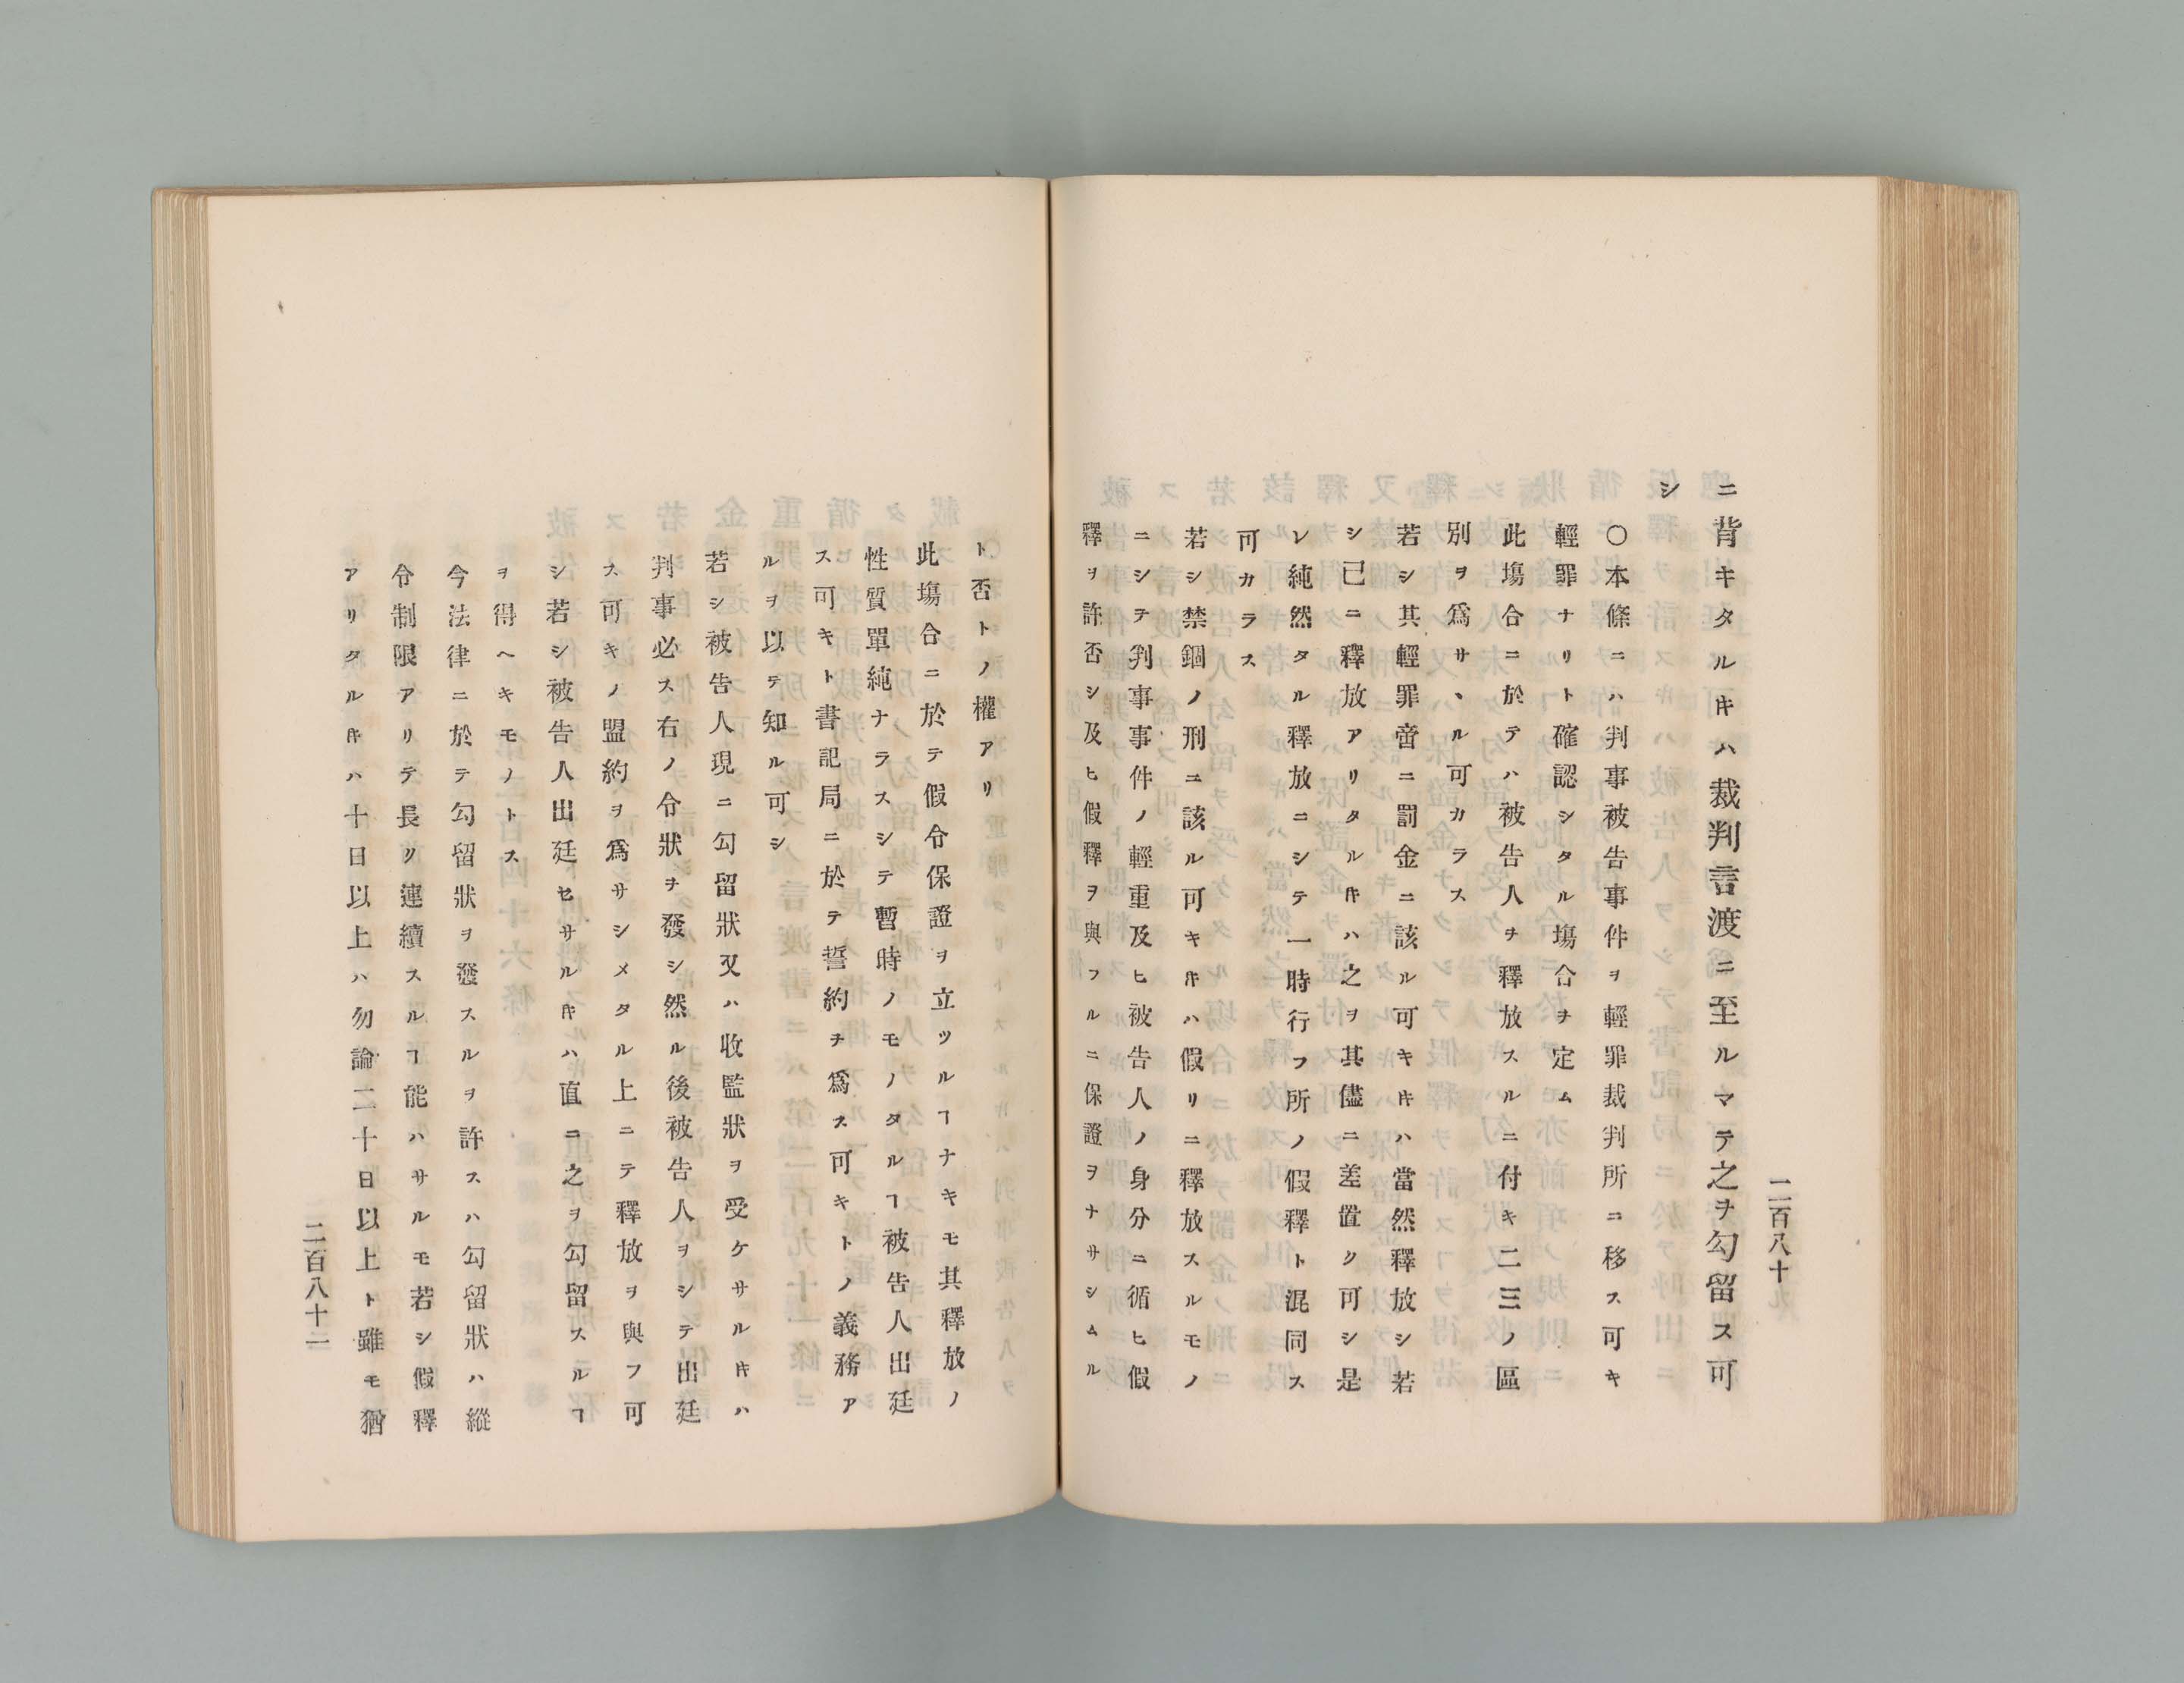 二百八十
ニ背キタルキハ裁判言渡ニ至ルマテ之ヲ勾留ス可
シ
〇本條ニハ判事被告事件ヲ輕罪裁判所ニ移ス可キ
輕罪ナリト確認シタル塲合ヲ定ム
此塲合ニ於テハ被告人ヲ釋放スルニ付キ二三ノ區
別ヲ爲サヽル可カラス
若シ其輕罪啻ニ罰金ニ該ル可キキハ當然釋放シ若
シ已ニ釋放アリタルキハ之ヲ其儘ニ差置ク可シ是
レ純然タル釋放ニシテ一時行フ所ノ假釋ト混同ス
可カラス
若シ禁錮ノ刑ニ該ル可キキハ假リニ釋放スルモノ
ニシテ判事事件ノ輕重及ヒ被告人ノ身分ニ循ヒ假
釋ヲ許否シ及ヒ假釋ヲ與フルニ保證ヲナサシムル
ト否トノ權アリ
此塲合ニ於テ假令保證ヲ立ツルヿナキモ其釋放ノ
性質單純ナラスシテ暫時ノモノタルヿ被告人出廷
ス可キト書記局ニ於テ誓約ヲ爲ス可キトノ義務ア
ルヲ以テ知ル可シ
若シ被告人現ニ勾留狀又ハ收監狀ヲ受ケサルキハ
判事必ス右ノ令狀ヲ發シ然ル後被告人ヲシテ出廷
ス可キノ盟約ヲ爲サシメタル上ニテ釋放ヲ與フ可
シ若シ被告人出廷セサルキハ直ニ之ヲ勾留スルヿ
ヲ得ヘキモノトス
今法律ニ於テ勾留狀ヲ發スルヲ許スハ勾留狀ハ縱
令制限アリテ長ク連續スルヿ能ハサルモ若シ假釋
アリタルキハ十日以上ハ勿論二十日以上ト雖モ猶
二百八十一